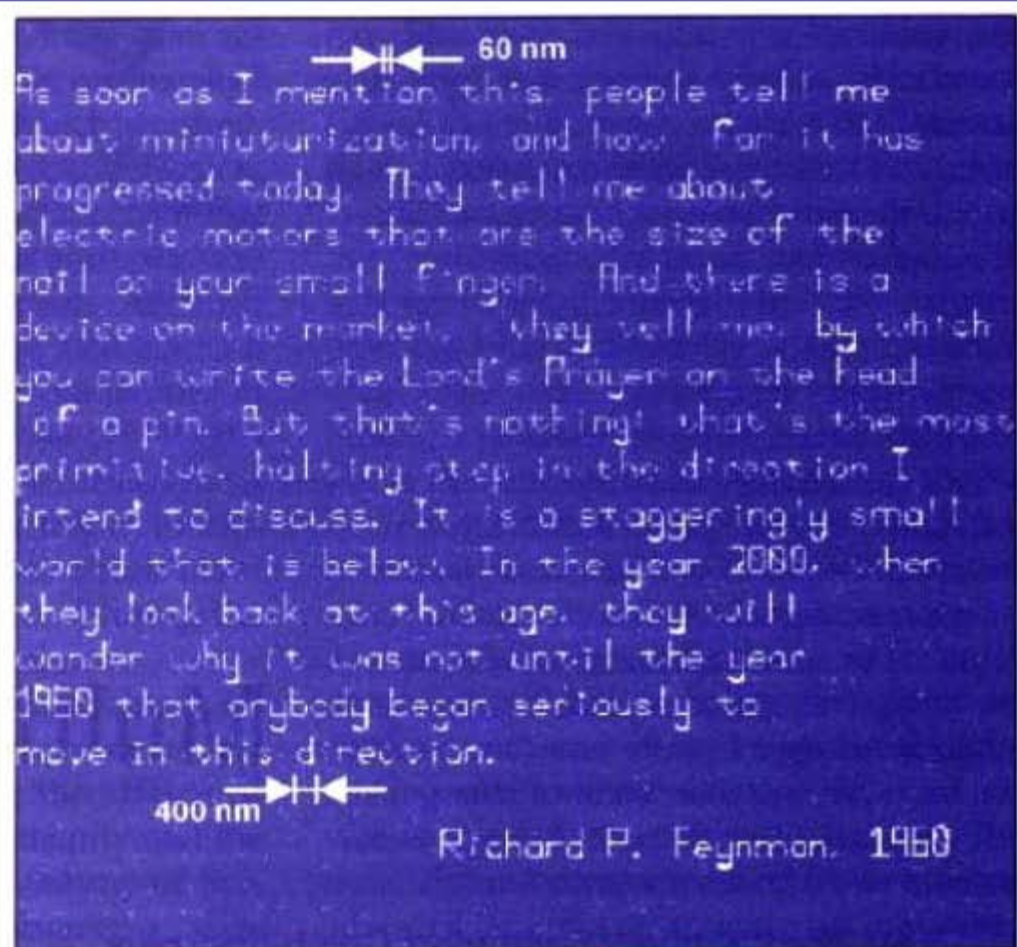 60 nm
As soon as I mention this, people tell me
about miniuturization, and how far it has
progressed today. They tell me about
electric motors that are the size of the
nail on your small finger. And there is a
device on the market, they tell me, by which
you can write the Lord's Prayer on the head
of a pin. But that's nothing! that's the most
primitive, halting step in the direction I
intend to discuss. It is a staggeringly small
world that is below. In the year 2000, when
they look back at this age, they will
wonder why it was not until the year
1960 that anybody began seriously to
move in this direction.
400 nm
Richard P. Feynman, 1960